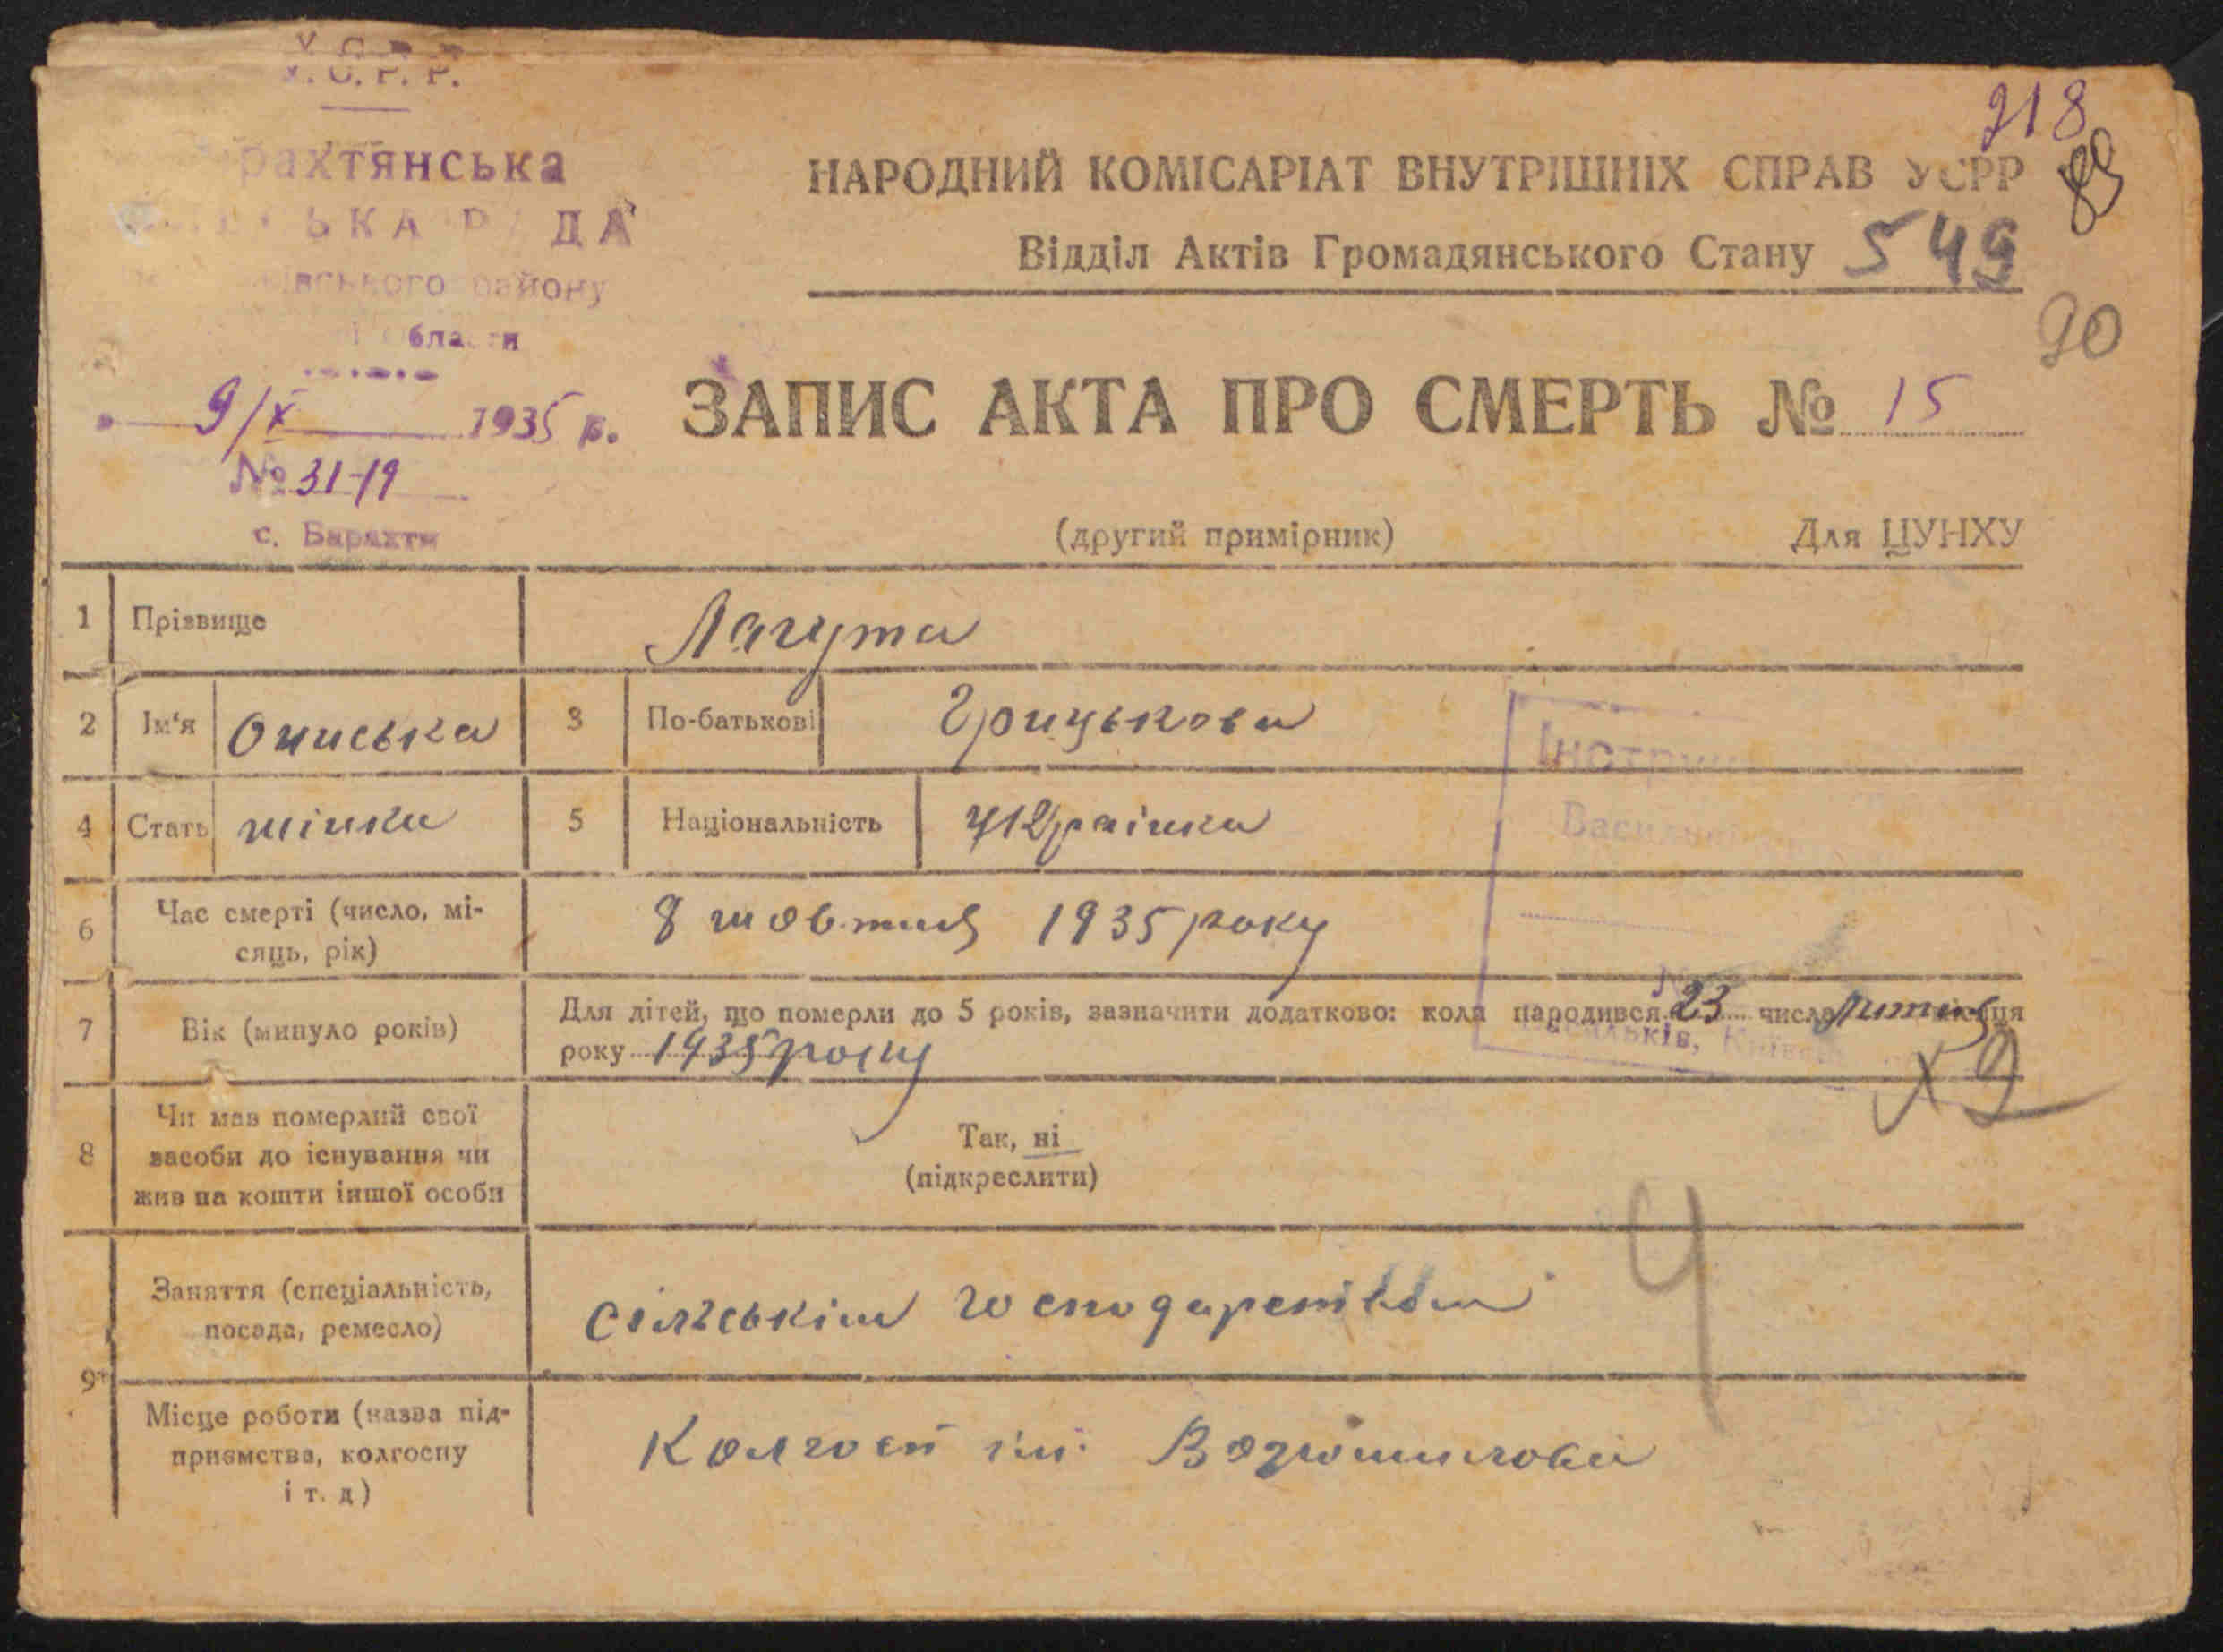 У.С.Р.Р.
рахтянська
ЬКА РАДА
району
области
9/X 1935 р.
№ 31-19
с. Барахти
218
89
НАРОДНИЙ КОМІСАРІАТ ВНУТРІШНІХ СПРАВ УСРР
Відділ Актів Громадянського Стану 549
90
ЗАПИС АКТА ПРО СМЕРТЬ № 15
(другий примірник) Для ЦУНХУ
1 Прізвище Лагута
2 Ім'я Ониська 3 По-батькові Грицькова
4 Стать жінка 5 Національність Українка
Інстру
Васи
6 Час смерті (число, мі-
сяць, рік) 8 жовтня 1935 року
7 Вік (минуло років) Для дітей, що померли до 5 років, зазначити додатково: коли народився 23 числа місяця
року 1935 року
Васильків,
х 9
8 Чи мав померлий свої
засоби до існування чи
жив на кошти іншої особи
Так, ні
(підкреслити)
4
9 Заняття (спеціальність,
посада, ремесло) сільським господарством
Місце роботи (назва під-
приємства, колгоспу
і т. д) Колгосп ім. Ворошилова